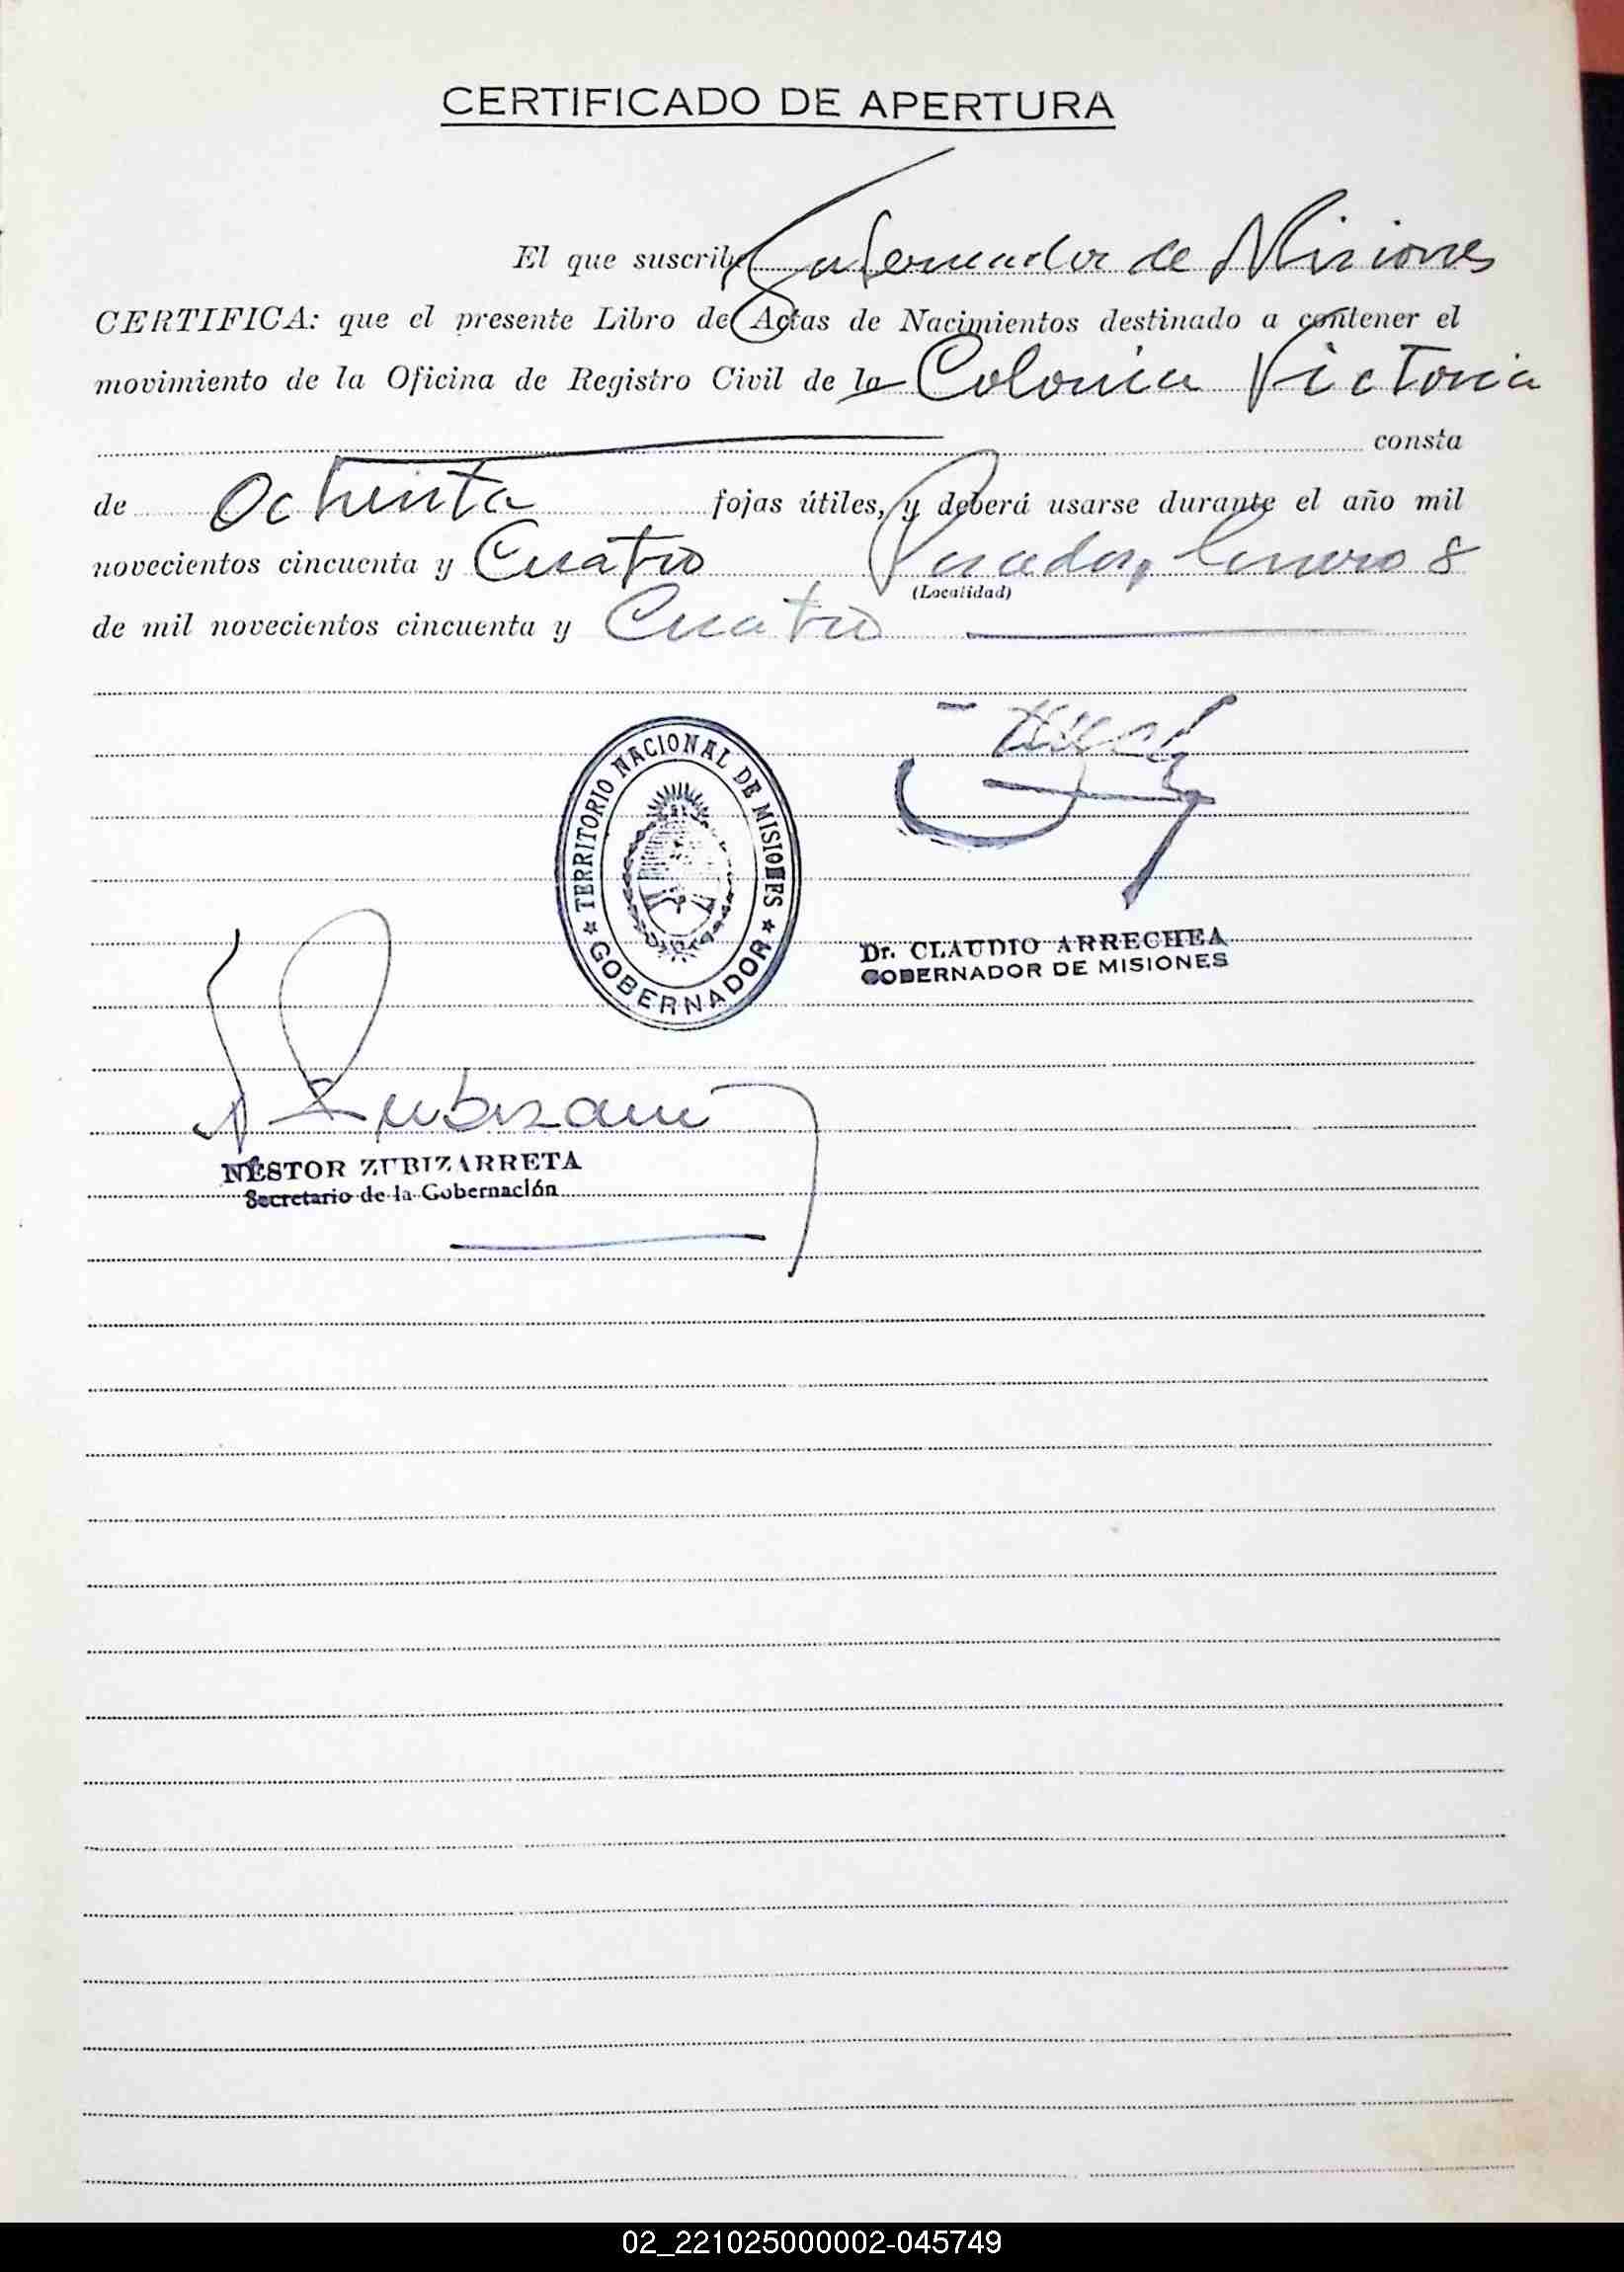 CERTIFICADO DE APERTURA
El que suscribe Gobernador de Misiones
CERTIFICA: que el presente Libro de Actas de Nacimientos destinado a contener el
movimiento de la Oficina de Registro Civil de la Colonia Victoria
consta
de Ochenta fojas útiles, y deberá usarse durante el año mil
novecientos cincuenta y Cuatro Posadas, Enero 8
(Localidad)
de mil novecientos cincuenta y Cuatro
TERRITORIO NACIONAL DE MISIONES
GOBERNADOR
Dr. CLAUDIO ARRECHEA
GOBERNADOR DE MISIONES
NÉSTOR ZUBIZARRETA
Secretario de la Gobernación
02_221025000002-045749